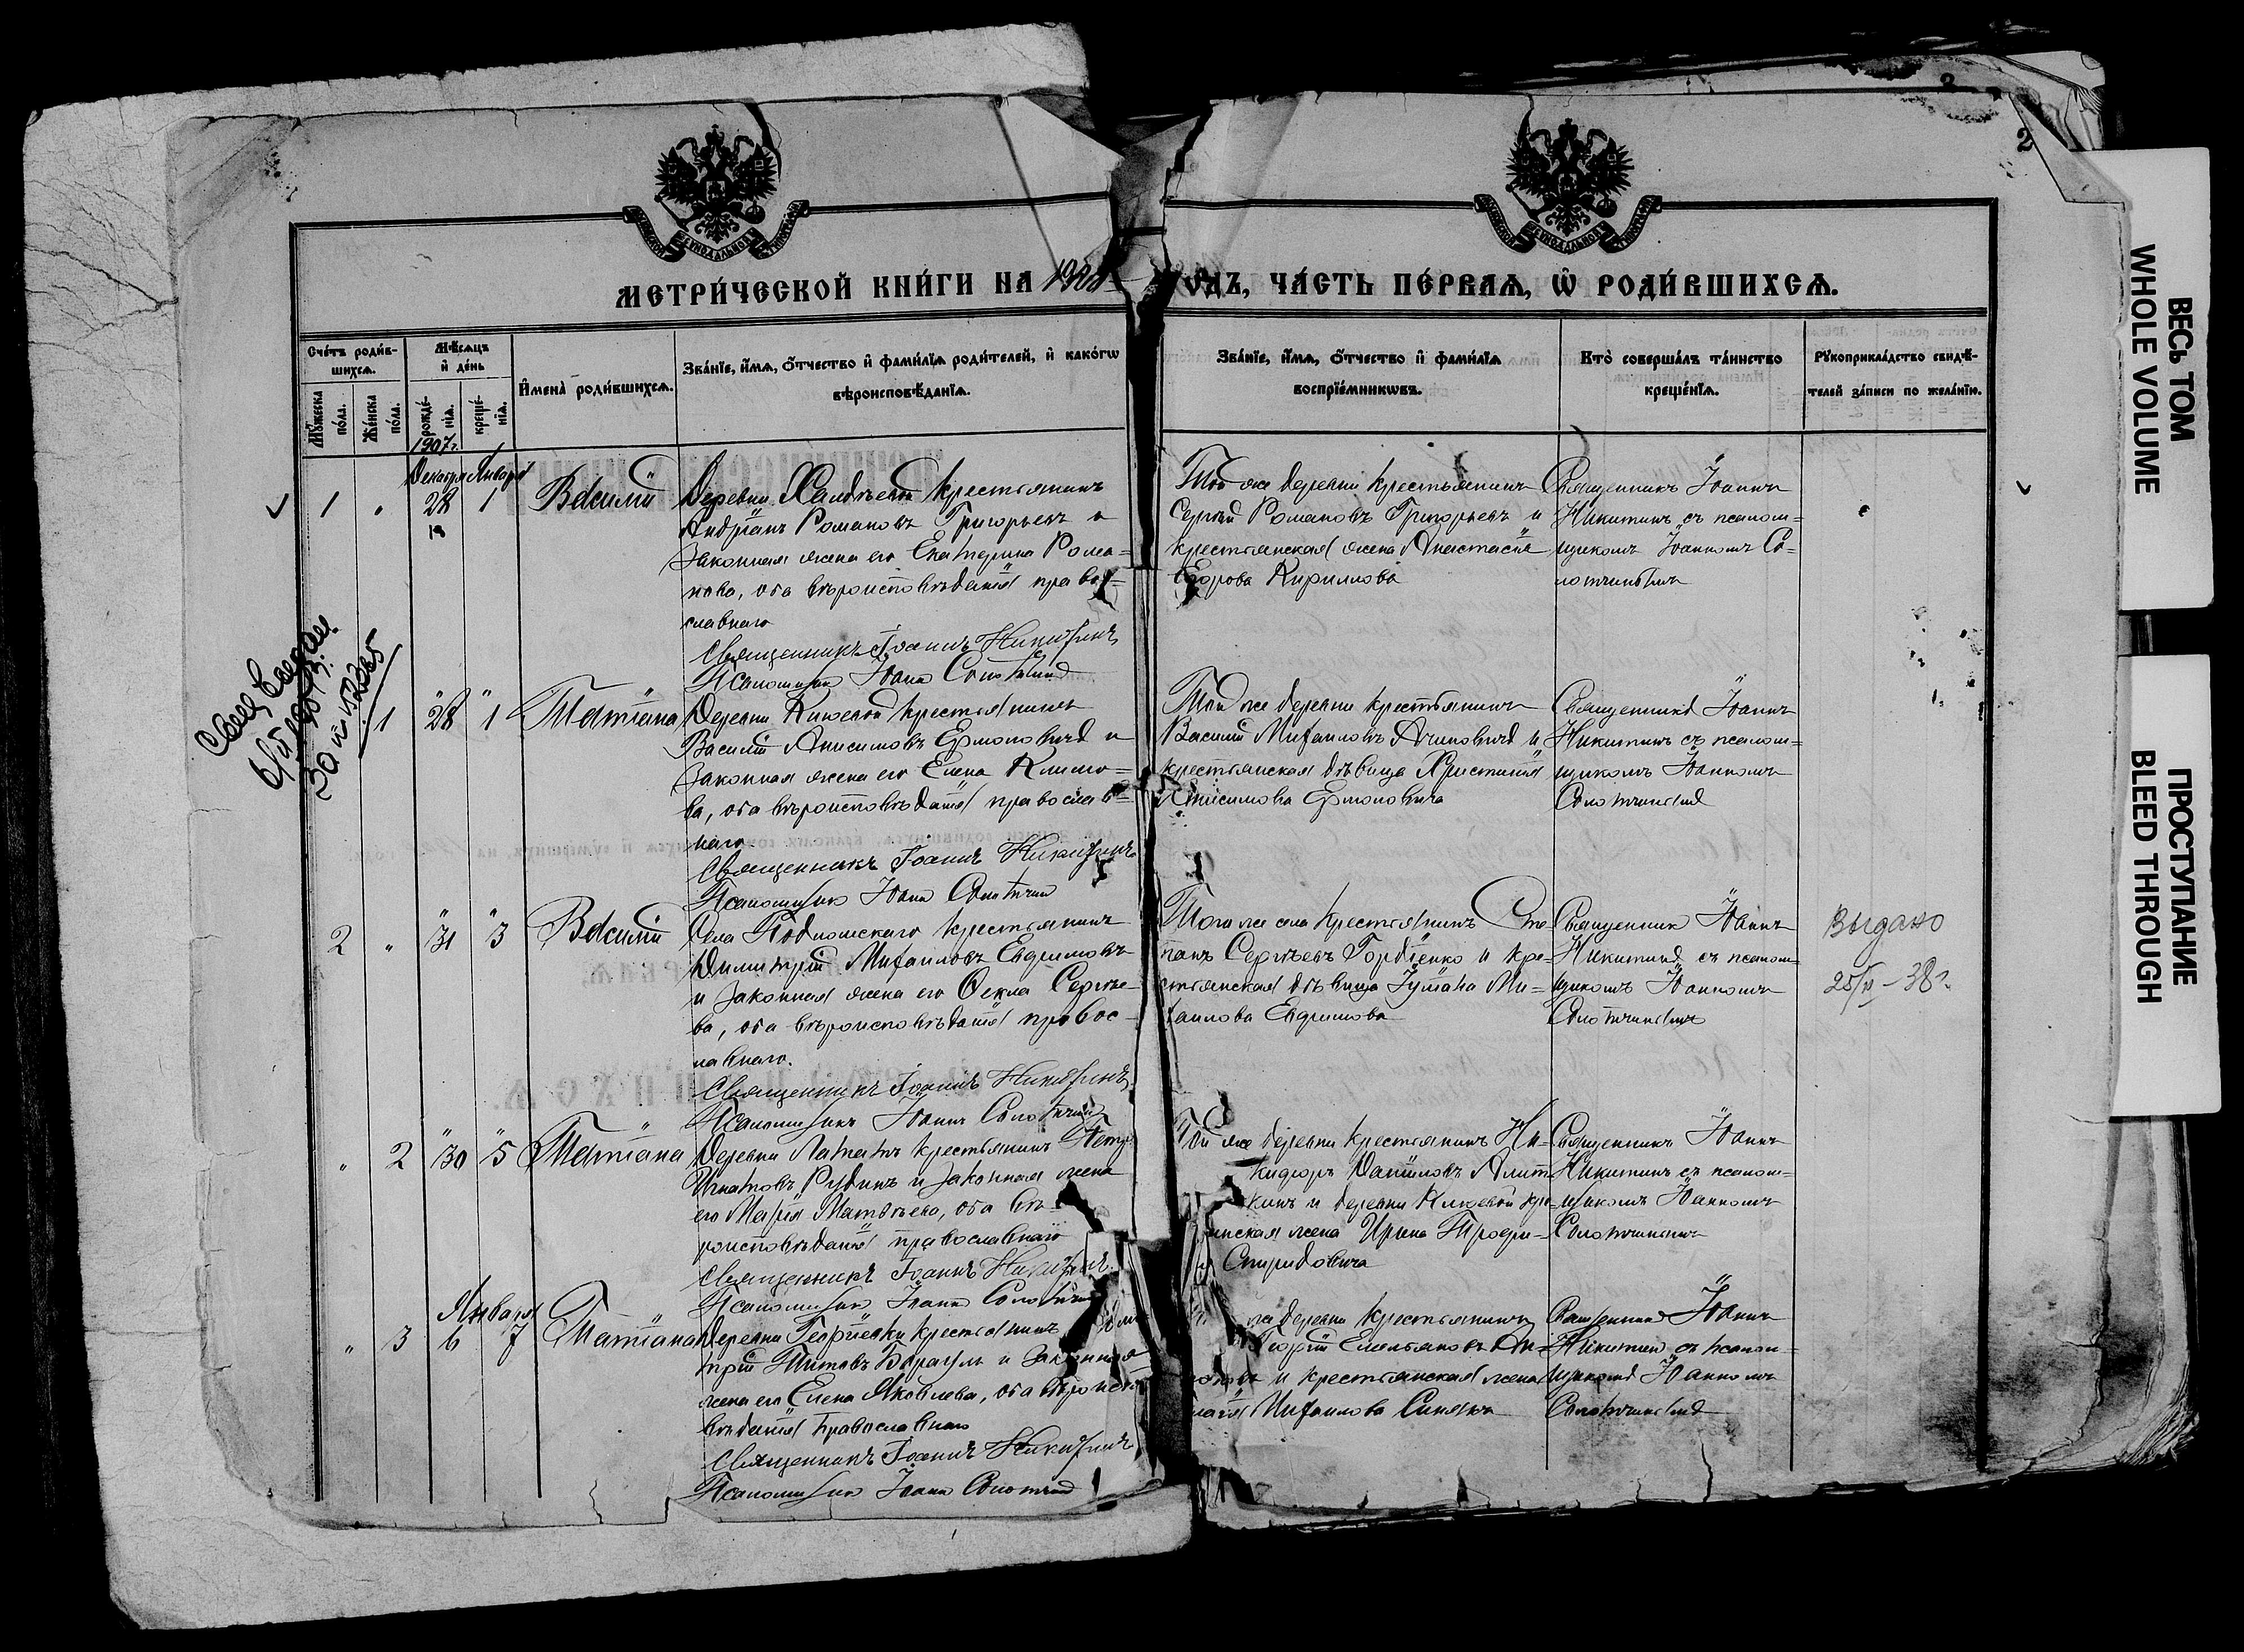 2
МЕТРИ́ЧЕСКОЙ КНИ́ГИ НА 1908 ГОДЪ, ЧА́СТЬ ПЕ́РВАѦ, Ѿ РОДИ́ВШИХСѦ.
Счётъ роди́в-
шихсѧ.
Мѣ́сѧцъ
и҆ де́нь
Мꙋжеска
по́ла.
Же́нска
по́ла.
рожде́-
нїѧ.
креще́-
нїѧ.
И҆мена̀ роди́вшихсѧ.
Зва́нїе, и҆́мѧ, ѻ҆́тчество и҆ фами́лїѧ роди́телей, и҆ како́гѡ
вѣроисповѣ́данїѧ.
Зва́нїе, и҆́мѧ, ѻ҆́тчество и҆ фами́лїѧ
воспрїе́мникѡвъ.
Кто̀ соверша́лъ та́инство
креще́нїѧ.
Рꙋкоприкла́дство свидѣ́-
телей за́писи по жела́нїю.
1907 г.
Декабря Января
1 " 28 1 Василій
Деревни крестьянинъ
Андріанъ Романовъ Григорьевъ и
законная жена его Екатерина Рома-
нова, оба вѣроисповѣданія право-
славнаго
Священникъ Іоаннъ Никитинъ
Псаломщикъ Іоаннъ
Той же деревни крестьянинъ
Сергѣй Романовъ Григорьевъ и
крестьянская жена Анастасія
Егорова Кирилова
Священникъ Іоаннъ
Никитинъ съ псалом-
щикомъ Іоанномъ Со-
" 1 28 1 Татіана
Деревни Князевой крестьянинъ
Василій Анисимовъ Ермоловичъ и
законная жена его Елена Климо-
ва, оба вѣроисповѣданія православ-
наго.
Священникъ Іоаннъ Никитинъ
Псаломщикъ Іоаннъ
Той же деревни крестьянинъ
Василій Михаиловъ и
крестьянская дѣвица Христинія
Анисимова Ермоловича
Священникъ Іоаннъ
Никитинъ съ псалом-
щикомъ Іоанномъ
2 " 31 3 Василій
Села крестьянинъ
Димитрій Михаиловъ Евдимовъ
и законная жена его Ѳекла Сергѣе-
ва, оба вѣроисповѣданія правос-
лавнаго.
Священникъ Іоаннъ Никитинъ
Псаломщикъ Іоаннъ
Того же села крестьянинъ Сте-
панъ Сергѣевъ Гордіенко и кре-
стьянская дѣвица Іуліана Ми-
хаилова Евдимова
Священникъ Іоаннъ
Никитинъ съ псалом-
щикомъ Іоанномъ
Выдано
25/II-38 г.
" 2 30 5 Татіана
Деревни крестьянинъ Петръ
Игнатовъ Рудинъ и законная жена
его Марія Матвѣева, оба вѣ-
роисповѣданія православнаго
Священникъ Іоаннъ Никитинъ
Псаломщикъ Іоаннъ
Той же деревни крестьянинъ Ни-
кифоръ Даніиловъ
и деревни Князевой кре-
жена Ирина Трофи-
Спиридовича
Священникъ Іоаннъ
Никитинъ съ псалом-
щикомъ Іоанномъ
Января
" 3 6 7 Татіана
Деревни Георгіевки крестьянинъ Дми-
трій Титовъ и законная
жена его Елена Яковлева, оба вѣроиспо-
вѣданія православнаго
Священникъ Іоаннъ Никитинъ
Псаломщикъ Іоаннъ
же деревни крестьянинъ
Георгій Емельяновъ
и крестьянская жена
Михаилова
Священникъ Іоаннъ
Никитинъ съ псалом-
щикомъ Іоанномъ
ВЕСЬ ТОМ
WHOLE VOLUME
ПРОСТУПАНИЕ
BLEED THROUGH